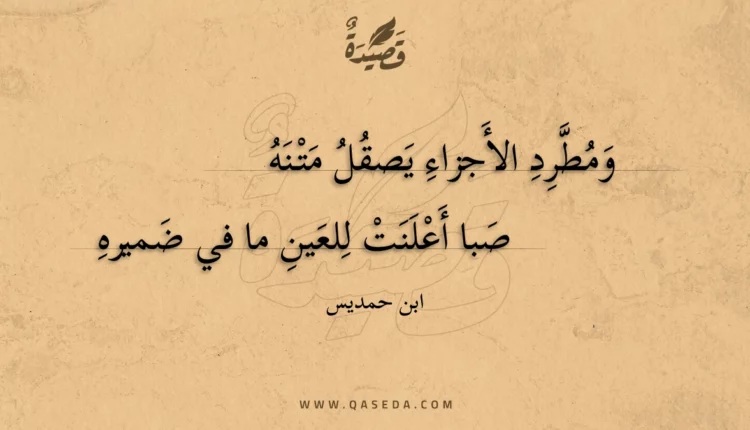 قَصِيْدَةٌ
وَمُطَّرِدِ الأَجزاءِ يَصقُلُ مَتْنَهُ
صَبا أَعْلَنَتْ لِلعَينِ ما في ضَميرهِ
ابن حمديس
WWW.QASEDA.COM